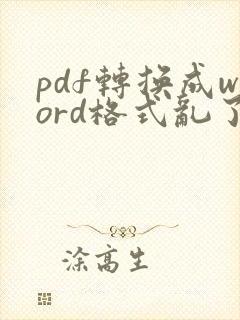 pdf轉換成w
ord格式亂了
涂高生